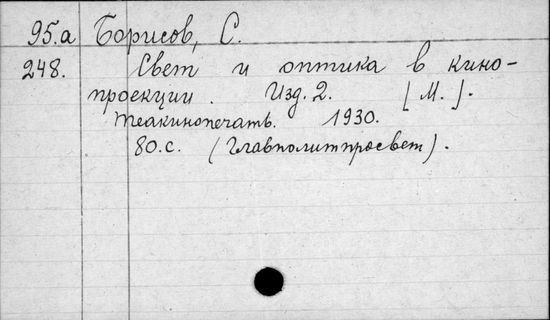 95.а Борисов, С.
248. Свет и оптика в кино-
проекции. Изд. 2. [М.].
Теакинопечать. 1930.
80.с. (Главполитпросвет).